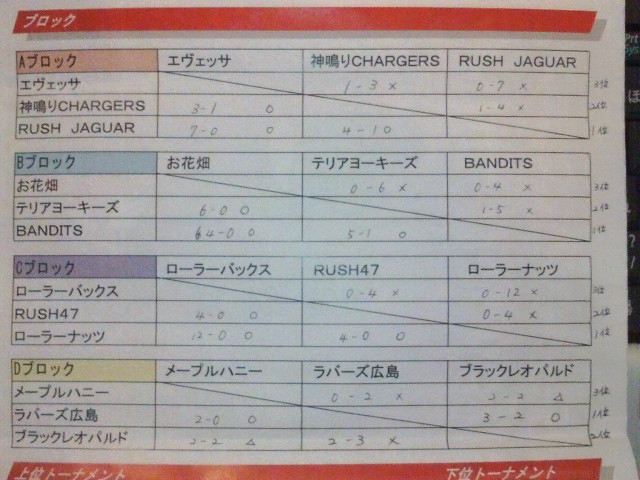 ブロック
Aブロック エヴェッサ 神鳴りCHARGERS RUSH JAGUAR
エヴェッサ 1-3 × 0-7 × 3位
神鳴りCHARGERS 3-1 O 1-4 × 2位
RUSH JAGUAR 7-0 O 4-1 O 1位
Bブロック お花畑 テリアヨーキーズ BANDITS
お花畑 0-6 × 0-4 × 3位
テリアヨーキーズ 6-0 O 1-5 × 2位
BANDITS 4-0 O 5-1 O 1位
Cブロック ローラーバックス RUSH47 ローラーナッツ
ローラーバックス 0-4 × 0-12 × 3位
RUSH47 4-0 O 0-4 × 2位
ローラーナッツ 12-0 O 4-0 O 1位
Dブロック メープルハニー ラバーズ広島 ブラックレオパルド
メープルハニー 0-2 × 2-2 △ 3位
ラバーズ広島 2-0 O 3-2 O 1位
ブラックレオパルド 2-2 △ 2-3 × 2位
上位トーナメント 下位トーナメント